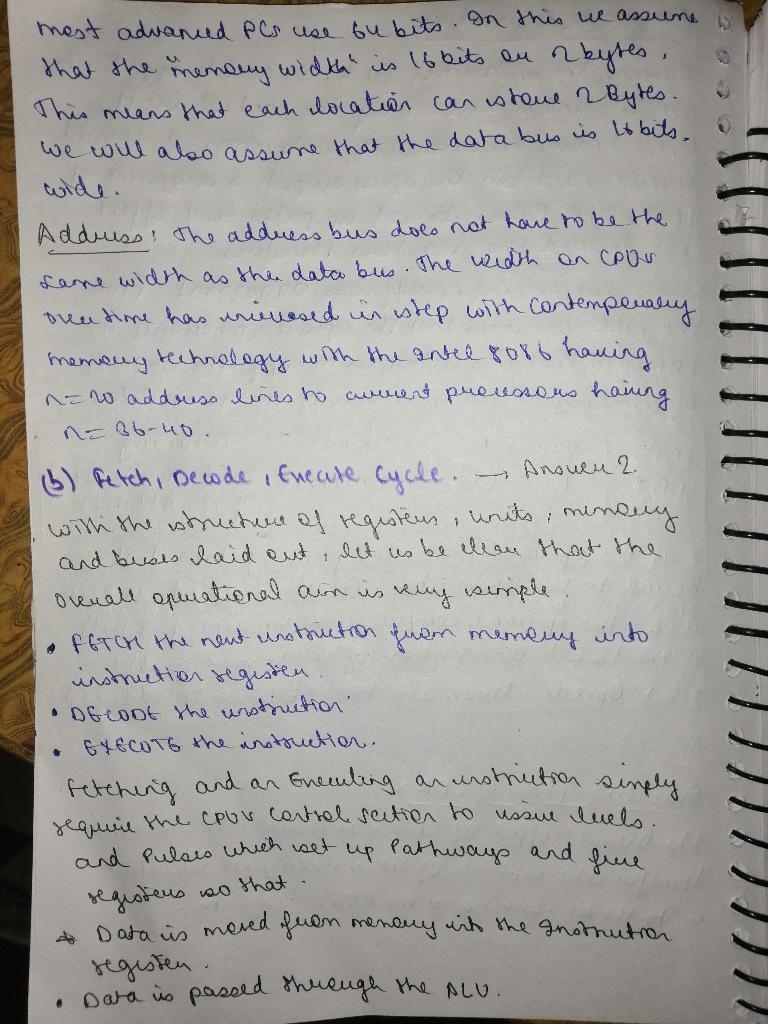 most advanced PCs use 64 bits. In this we assume
that the "memory width" is 16 bits or 2 bytes.
This means that each location can store 2 Bytes.
we will also assume that the data bus is 16 bits.
wide.
Address: The address bus does not have to be the
same width as the data bus. The width on CPUs
over time has increased in step with contemporary
memory technology with the Intel 8086 having
n=20 address lines to current processors having
n=36-40.
(b) Fetch, Decode, Execute Cycle. → Answer 2.
with the structure of registers, units, memory
and buses laid out, let us be clear that the
overall operational aim is very simple.
• FETCH the next instruction from memory into
instruction register.
• DECODE the instruction
• EXECUTE the instruction.
Fetching and an Executing an instruction simply
require the CPUs control section to issue levels.
and Pulses which set up Pathways and fire
registers so that.
* Data is moved from memory into the Instruction
register.
• Data is passed through the ALU.